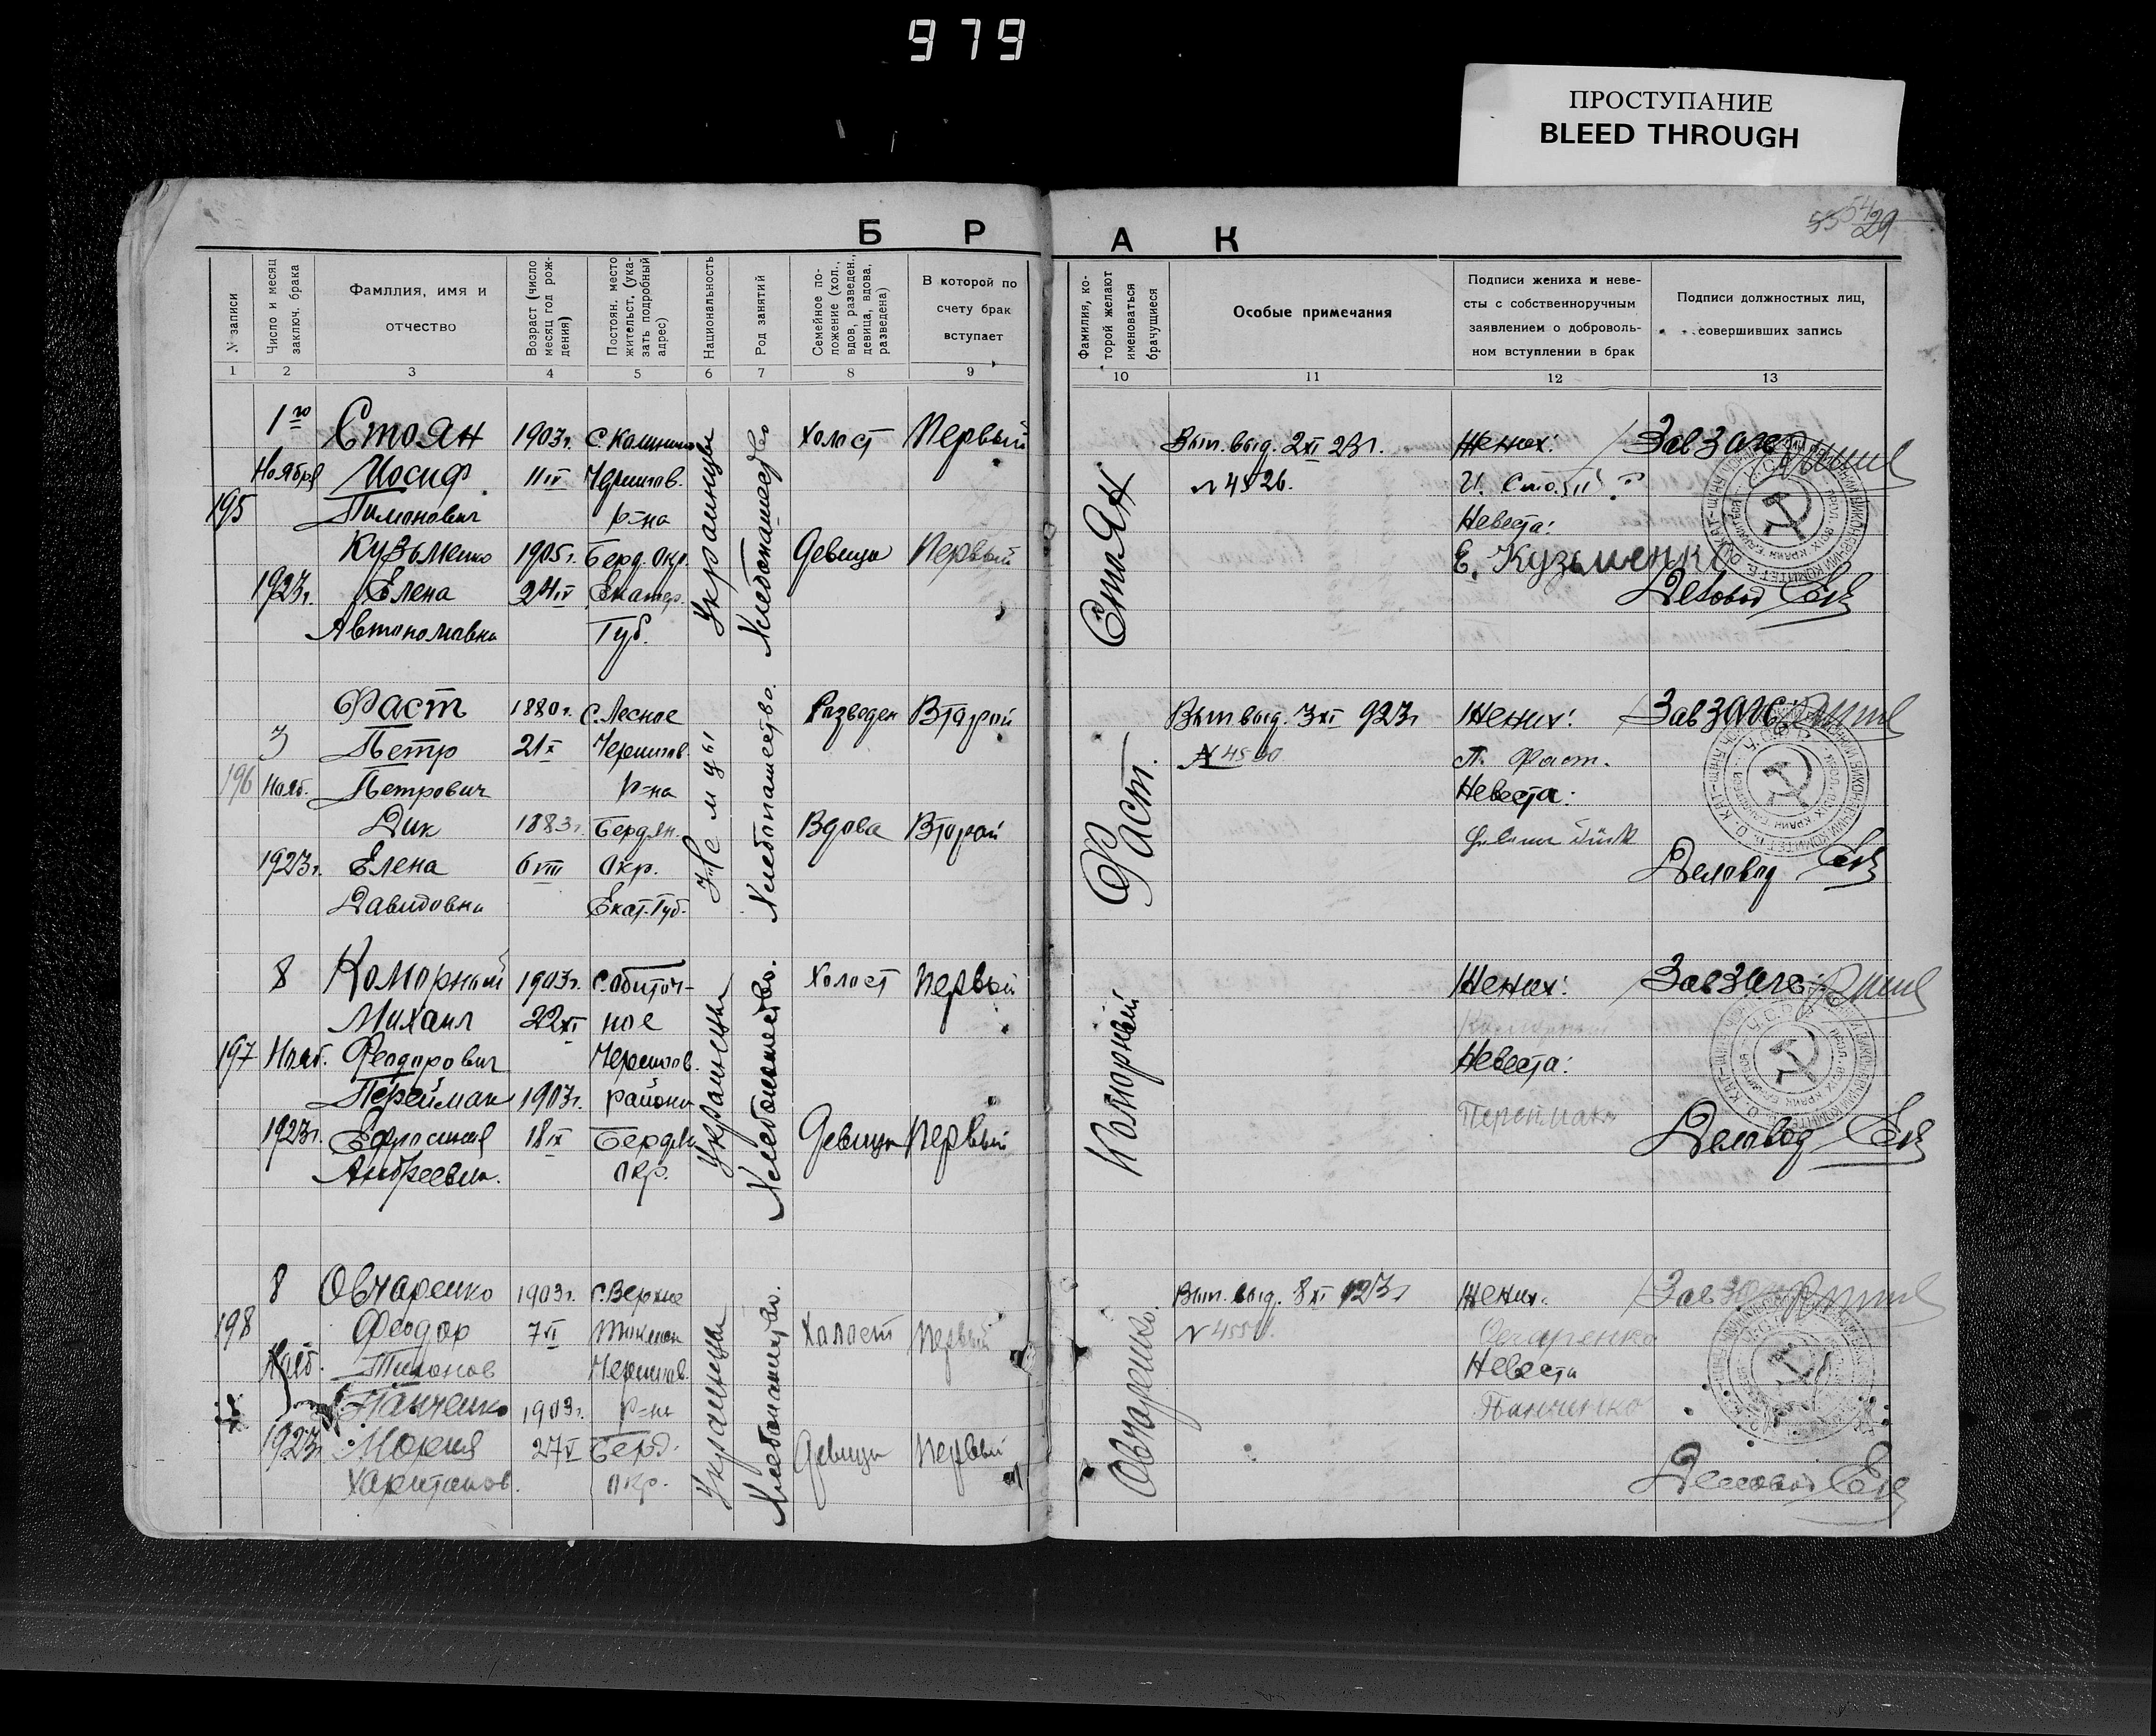 979
ПРОСТУПАНИЕ
BLEED THROUGH
29
Б Р А К
№ записи
Число и месяц заключ. брака
Фамллия, имя и отчество
Возраст (число месяц год рождения)
Постоян. место жительст. (указать подробный адрес)
Национальность
Род занятий
Семейное положение (хол., вдов, разведен., девица, вдова, разведена)
В которой по счету брак вступает
Фамилия, которой желают именоваться брачущиеся
Особые примечания
Подписи жениха и невесты с собственноручным заявлением о добровольном вступлении в брак
Подписи должностных лиц, совершивших запись
1 2 3 4 5 6 7 8 9 10 11 12 13
1го Стоян 1903г. С. Холост Первый Вып. выд. 2 XI 23г. Жених: Завзагс
Ноября Иосиф 11 IV Чернигов. № 4526.
195 Тимонович р-на Невеста:
Кузьменко 1905г. Берд. Окр. Девица Первый Е. Кузьменко
1923г. Елена 24 IV Екатер. Деловод
Автономовна Губ.
Украинцы
Хлебопашество
Стоян
Фаст 1880г. С. Лесное Разведен Второй Вып выд. 3 XI 923г Жених: Завзагс
3 Петр 21 X Чернигов. П. Фаст.
196 Нояб. Петрович р-на Невеста:
Дик 1883г. Бердян. Вдова Второй
1923г. Елена 6 VIII Окр. Деловод
Давидовна Екат. Губ.
Немцы
Хлебопашество.
Фаст.
8 Коморный 1903г. С. Обиточ- Холост Первый Жених: Завзагс
Михаил 22 XI ное
197 Нояб. Феодорович Чернигов. Невеста:
Переймак 1903г. района
1923г. Ефросиния 18 IX Бердян Девица Первый Деловод
Андреевна. Окр.
Украинцы
Хлебопашество.
Коморный
8 Овчаренко 1903г. С. Верхне Вып. выд. 8 XI 923г Жених: Завзагс
198 Феодор 7 VI Токмак Холост Первый Овчаренко
Нояб. Тихонов Чернигов. Невеста
Панченко 1903г. р-на Панченко
1923г Мария 27 V Берд. Девица Первый
Харитонов. Окр. Деловод
Украинцы
Хлебопашество.
Овчаренко.